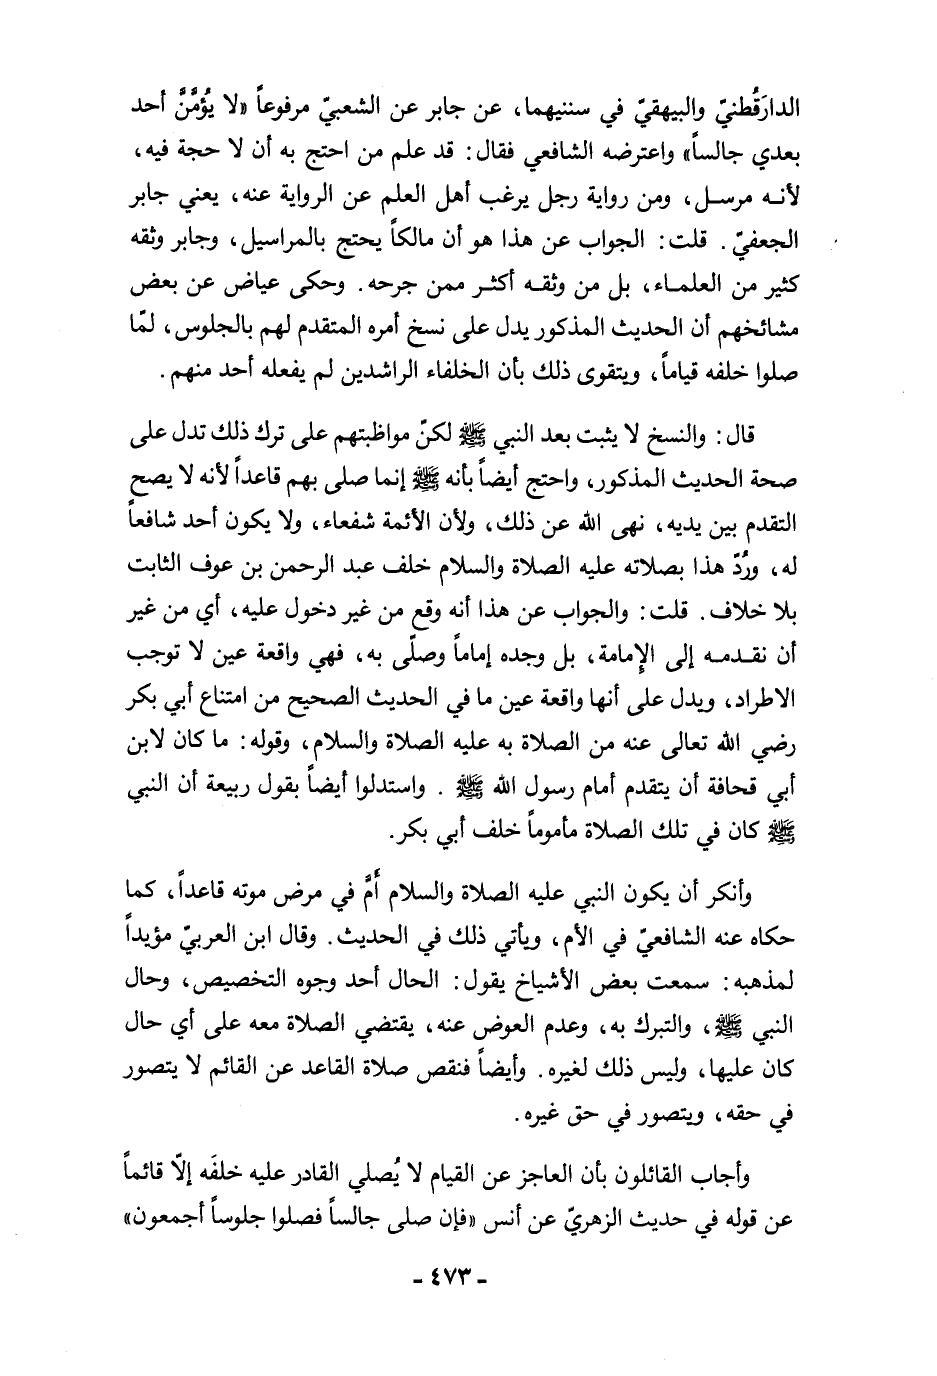 الدارَقُطنيّ والبيهقيّ في سننيهما، عن جابر عن الشعبيّ مرفوعاً «لا يُؤمَّنَّ أحد
بعدي جالساً» واعترضه الشافعي فقال: قد علم من احتج به أن لا حجة فيه،
لأنه مرسل، ومن رواية رجل يرغب أهل العلم عن الرواية عنه، يعني جابر
الجعفيّ. قلت: الجواب عن هذا هو أن مالكاً يحتج بالمراسيل، وجابر وثقه
كثير من العلماء، بل من وثقه أكثر ممن جرحه. وحكى عياض عن بعض
مشائخهم أن الحديث المذكور يدل على نسخ أمره المتقدم لهم بالجلوس، لمّا
صلوا خلفه قياماً، ويتقوى ذلك بأن الخلفاء الراشدين لم يفعله أحد منهم.
قال: والنسخ لا يثبت بعد النبي ﷺ لكنّ مواظبتهم على ترك ذلك تدل على
صحة الحديث المذكور، واحتج أيضاً بأنه ﷺ إنما صلى بهم قاعداً لأنه لا يصح
التقدم بين يديه، نهى الله عن ذلك، ولأن الأئمة شفعاء، ولا يكون أحد شافعاً
له، ورُدّ هذا بصلاته عليه الصلاة والسلام خلف عبد الرحمن بن عوف الثابت
بلا خلاف. قلت: والجواب عن هذا أنه وقع من غير دخول عليه، أي من غير
أن نقدمه إلى الإمامة، بل وجده إماماً وصلّى به، فهي واقعة عين لا توجب
الاطراد، ويدل على أنها واقعة عين ما في الحديث الصحيح من امتناع أبي بكر
رضي الله تعالى عنه من الصلاة به عليه الصلاة والسلام، وقوله: ما كان لابن
أبي قحافة أن يتقدم أمام رسول الله ﷺ . واستدلوا أيضاً بقول ربيعة أن النبي
ﷺ كان في تلك الصلاة مأموماً خلف أبي بكر.
وأنكر أن يكون النبي عليه الصلاة والسلام أَمَّ في مرض موته قاعداً، كما
حكاه عنه الشافعيّ في الأم، ويأتي ذلك في الحديث. وقال ابن العربيّ مؤيداً
لمذهبه: سمعت بعض الأشياخ يقول: الحال أحد وجوه التخصيص، وحال
النبي ﷺ، والتبرك به، وعدم العوض عنه، يقتضي الصلاة معه على أي حال
كان عليها، وليس ذلك لغيره. وأيضاً فنقص صلاة القاعد عن القائم لا يتصور
في حقه، ويتصور في حق غيره.
وأجاب القائلون بأن العاجز عن القيام لا يُصلي القادر عليه خلفَه إلّا قائماً
عن قوله في حديث الزهريّ عن أنس «فإن صلى جالساً فصلوا جلوساً أجمعون»
- ٤٧٣ -